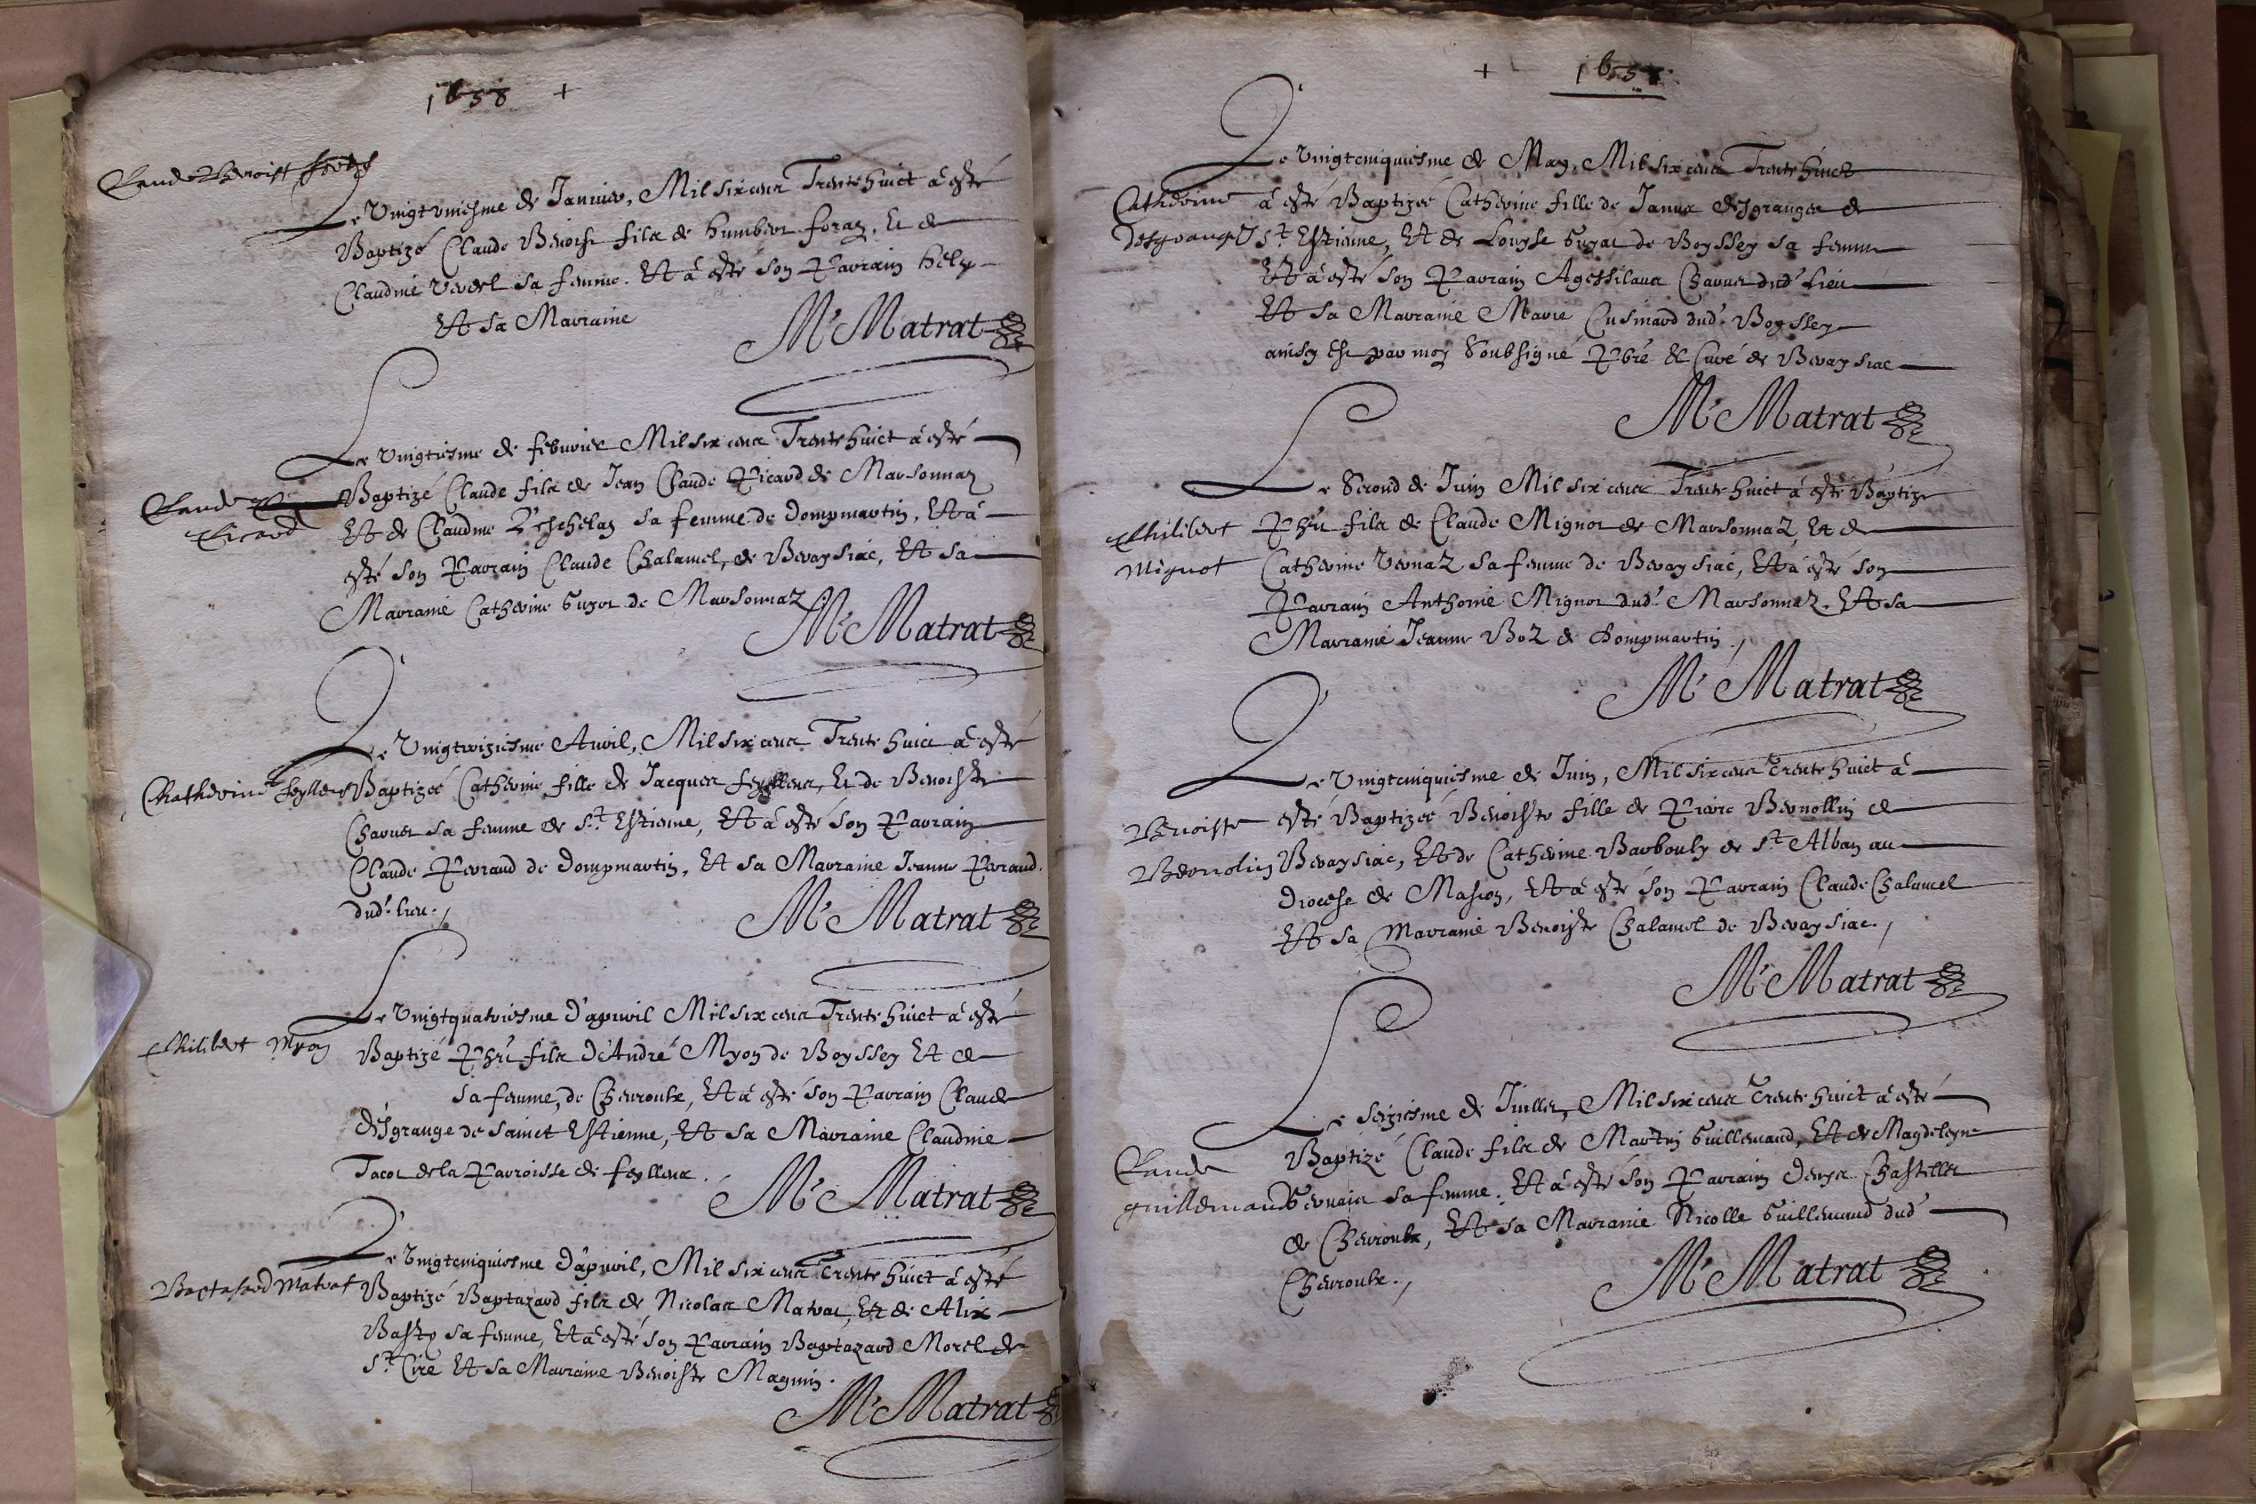 1638 +
Claude Benoist foraz
Le Vingtvniesme de Januier, Mil six cens Trente huict à esté
Baptizé Claude Benoist filz de humbert foraz, Et de
Claudine Veverl sa femme. Et à esté son Parrain hely
Et sa Marraine
M. Matrat
Le vingtiesme de feburier Mil six cens Trente huict à esté
Claude
Ricard
Baptizé Claude filz de Jean Claude Ricard de Marsonnaz
Et de Claudine sa femme de dompmartin, Et à
esté son Parrain Claude Chalamel, de Beraysiac, Et sa
Marraine Catherine Guyot de Marsonnaz
M. Matrat
Le Vingtroiziesme Auril, Mil six cens Trente huict à esté
Chatherine feyllens
Baptizeé Catherine fille de Jacques feyllens, Et de Benoiste
Charuet sa femme de St. Estienne, Et à esté son Parrain
Claude Perraud de dompmartin, Et sa Marraine Jeanne Perraud
dud. lieu.
M. Matrat
Le Vingtquatriesme d'apuril Mil six cens Trente huict à esté
Philibert Myon
Baptizé Phiĩ filz d'André Myon de Boyssey Et de
sa femme, de Cheuroulx, Et à esté son Parrain Claude
desgrange de sainct Estienne, Et sa Marraine Claudine
Jacot de la Parroisse de feyllens.
M. Matrat
Le Vingtcinquiesme d'apuril, Mil six cens Trente huict à esté
Baptasard Matrat
Baptizé Baptazard filz de Nicolas Matrat, Et de Alix
Basty sa femme, Et à esté son Parrain Baptazard Morel de
St. Cire Et sa Marraine Benoiste Magnin.
M. Matrat
+ 1638
Le Vingtcinquiesme de May, Mil six cens Trente huict
Catherine
desgranges
à esté Baptizeé Catherine fille de Janus desgranges de
St. Estienne, Et de Louyse Guyat de Boyssey sa femme
Et à esté son Parrain Agessilaus Charuet dud. Lieu
Et sa Marraine Marie Cusinard dud. Boyssey
ainsy est par moy Soubsigné Pbre et Curé de Beraysiac
M. Matrat
Le Second de Juin Mil six cens Trente huict à esté Baptizé
Philibert
Mignot
Phiĩ filz de Claude Mignot de Marsonnaz, Et de
Catherine Vernaz sa femme de Beraysiac, Et à esté son
Parrain Anthoine Mignot dud. Marsonnaz. Et sa
Marraine Jeanne Boz de dompmartin.
M. Matrat
Le Vingtcinquiesme de Juin, Mil six cens Trente huict à
Benoiste
Bernolin
esté Baptizeé Benoiste fille de Pierre Bernollin de
Beraysiac, Et de Catherine Barbouly de St. Alban au
diocese de Mascon, Et à esté son Parrain Claude Chalamel
Et sa Marraine Benoiste Chalamel de Beraysiac.
M. Matrat
Le Seiziesme de Juillet, Mil six cens Trente huict à esté
Claude
guillemaud
Baptizé Claude filz de Martin Guillemaud, Et de Magdeleyne
Gernais sa femme. Et à esté son Parrain denys Chastellet
de Cheuroulx, Et sa Marraine Nicolle Guillemaud dud
Cheuroulx.
M. Matrat